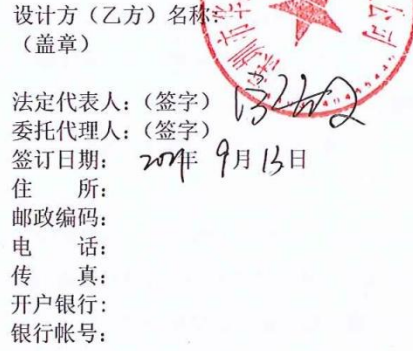 设计方（乙方）名称：
（盖章）
法定代表人：（签字）
委托代理人：（签字）
签订日期： 年 9月13日
住 所：
邮政编码：
电 话：
传 真：
开户银行：
银行帐号：